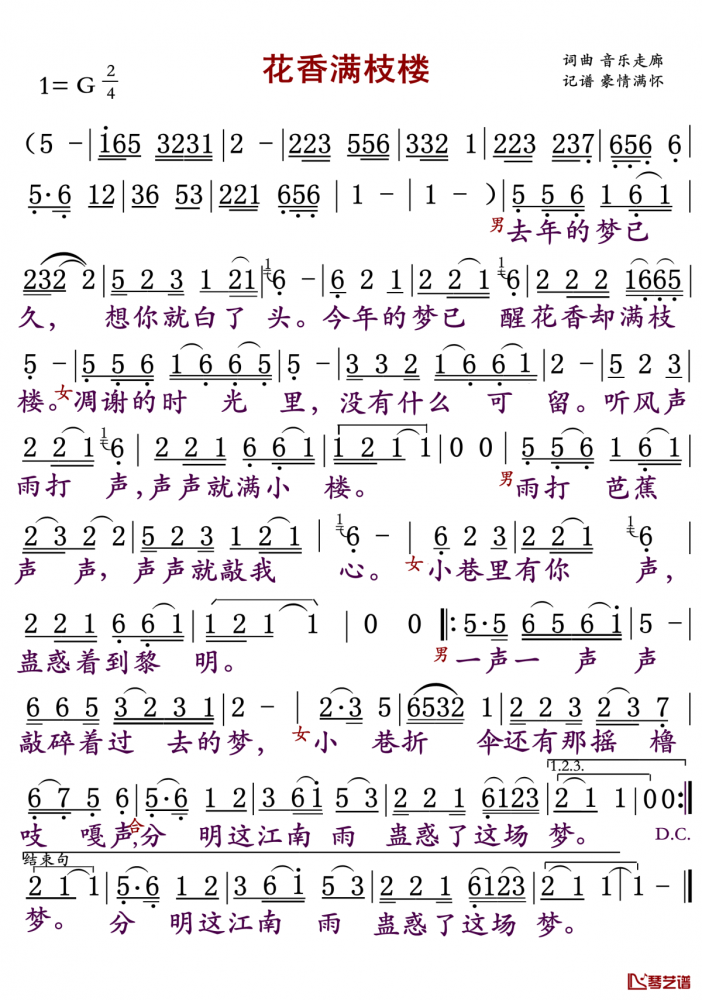 花香满枝楼
词曲 音乐走廊
记谱 豪情满怀
1= G 2/4
(5 -|165 3231|2 -|223 556|332 1|223 237|656 6|
5·6 12|36 53|221 656|1 -|1 -)|5 5 6 1 6 1|
男去年的梦已
232 2|5 2 3 1 21|6 -|6 2 1|2 2 1 6|2 2 2 1665|
久, 想你就白了 头。今年的梦已 醒花香却满枝
5 -|5 5 6 1 6 6 5|5 -|3 3 2 1 6 6 1|2 -|5 2 3
楼。女凋谢的时 光 里,没有什么 可 留。听风声
2 2 1 6|2 2 1 6 6 1|1 2 1 1|0 0|5 5 6 1 6 1|
雨打 声,声声就满小 楼。 男雨打 芭蕉
2 3 2 2|5 2 3 1 2 1|6 -|6 2 3 2 1 2 1|6
声 声, 声声就敲我 心。女小巷里有你 声,
2 2 1 6 6 1|1 2 1 1|0 0‖:5·5 6 5 6 1|5 -|
蛊惑着到黎 明。 男一声一 声 声
6 6 5 3 2 3 1|2 -|2·3 5|6532 1|2 2 3 2 3 7|
敲碎着过 去的梦,女小 巷折 伞还有那摇 橹
1.2.3.
6 7 5 6|5·6 1 2|3 6 1 5 3|2 2 1 6123|2 1 1|00:‖
吱 嘎声,合分 明这江南 雨 蛊惑了这场 梦。 D.C.
结束句
2 1 1|5·6 1 2|3 6 1 5 3|2 2 1 6123|2 1 1|1 -‖
梦。 分 明这江南 雨 蛊惑了这场 梦。
琴艺谱